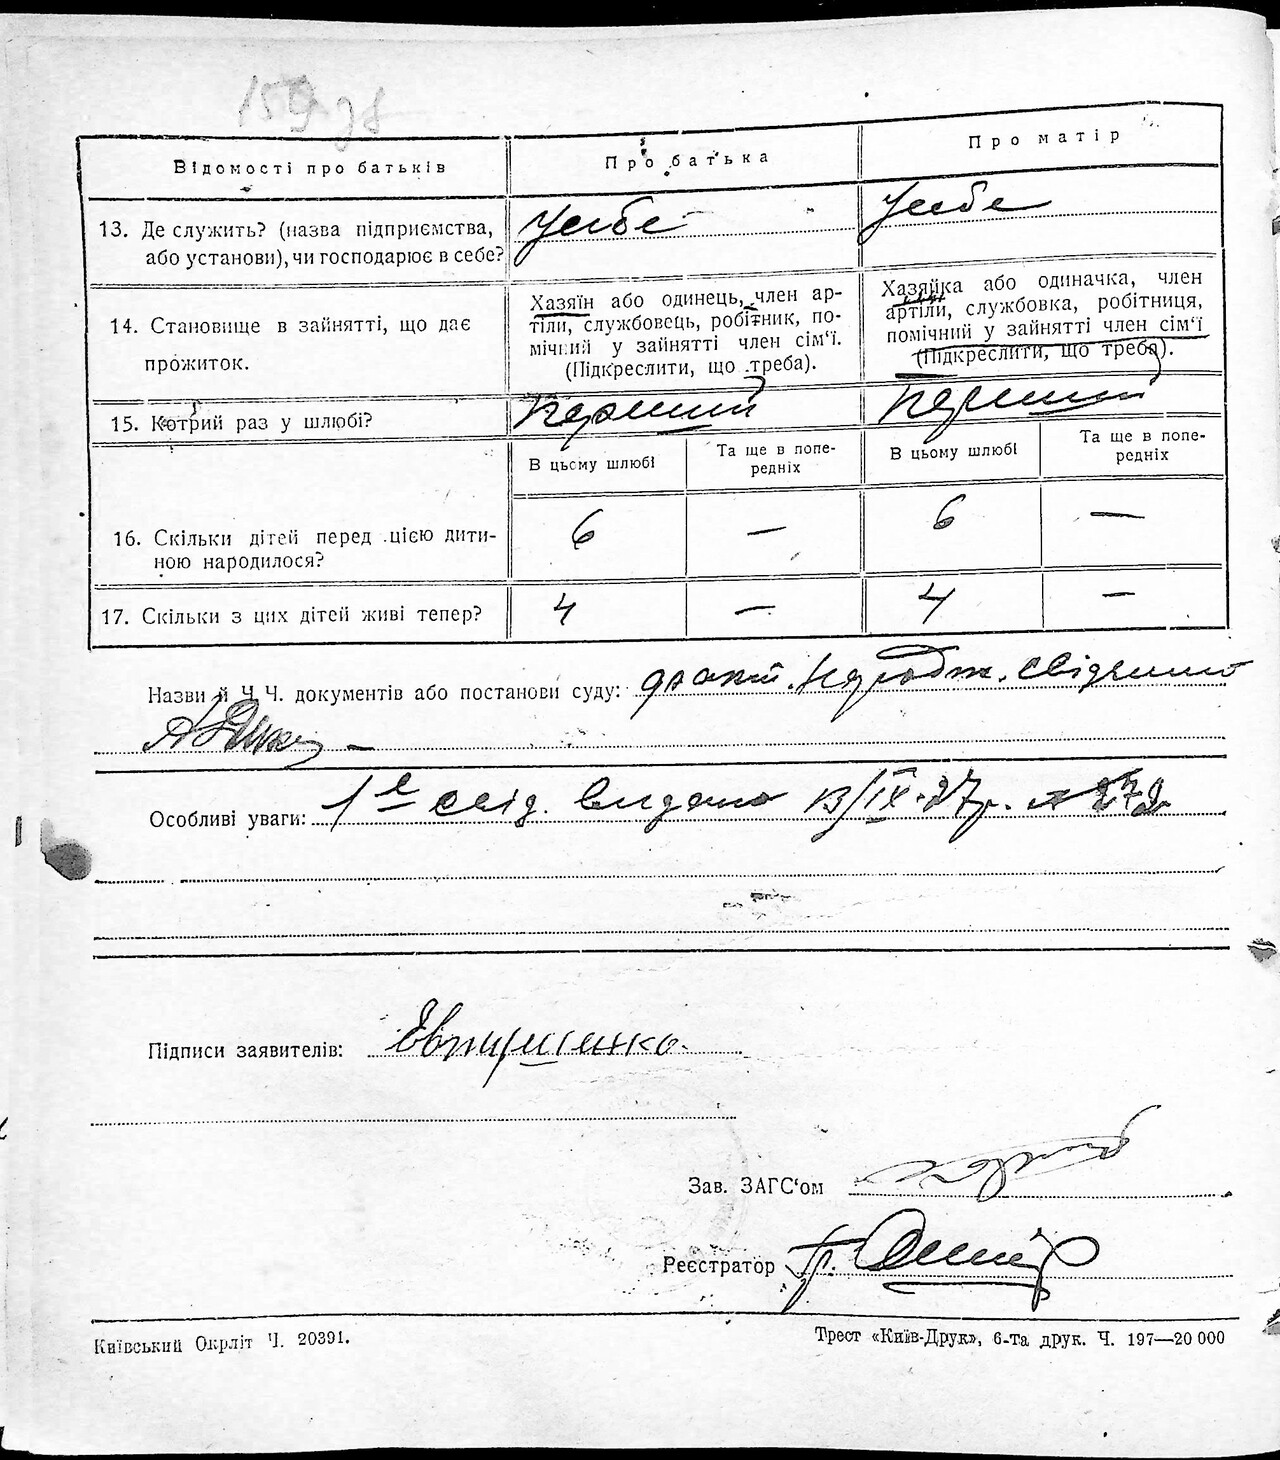 Відомості про батьків
Про батька
Про матір
13. Де служить? (назва підприємства,
або установи), чи господарює в себе?
У себе
У себе
14. Становище в зайнятті, що дає
прожиток.
Хазяїн або одинець, член ар-
тіли, службовець, робітник, по-
мічний у зайнятті член сім'ї.
(Підкреслити, що треба).
Хазяйка або одиначка, член
артіли, службовка, робітниця,
помічний у зайнятті член сім'ї
(Підкреслити, що треба).
15. Котрий раз у шлюбі?
Перший
Перший
В цьому шлюбі
Та ще в попе-
редніх
В цьому шлюбі
Та ще в попе-
редніх
16. Скільки дітей перед цією дити-
ною народилося?
6 — 6 —
17. Скільки з цих дітей живі тепер?
4 — 4 —
Назви й Ч.Ч. документів або постанови суду: факт. народж.
Особливі уваги: 1е свід. видано 13/IX-27р. № 272
Підписи заявителів:
Зав. ЗАГС'ом
Реєстратор
Київський Окрліт Ч. 20391.
Трест «Київ-Друк», 6-та друк. Ч. 197—20 000